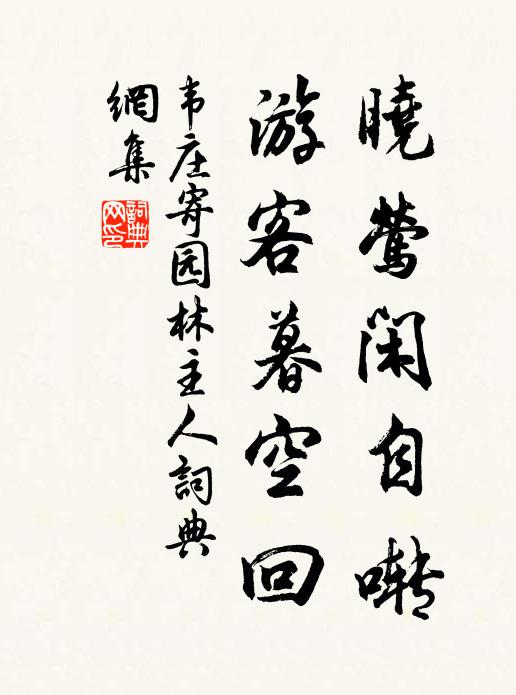 曉鶯閑自囀
游客暮空回
韦庄寄园林主人詞典
網集
詞典网印